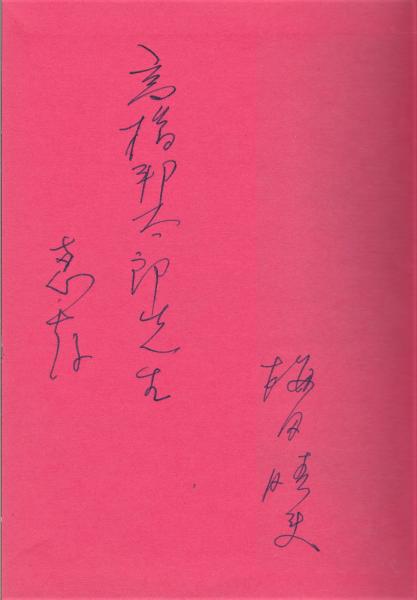 梅田晴夫
高橋邦太郎先生
恵存